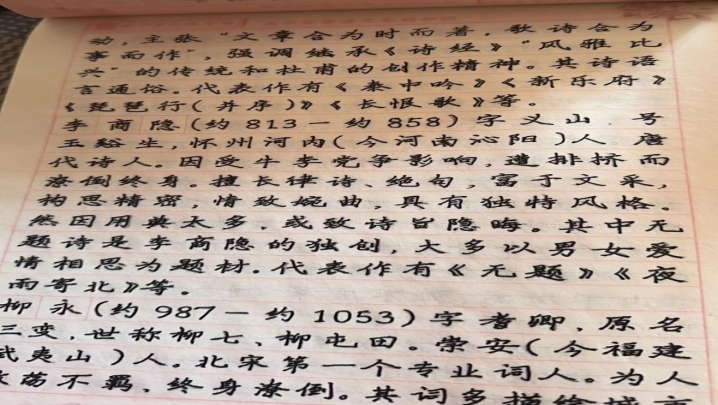 动，主张“文章合为时而著，歌诗合为
事而作”，强调继承《诗经》“风雅比
兴”的传统和杜甫的创作精神。其诗语
言通俗。代表作有《秦中吟》《新乐府》
《琵琶行(并序)》《长恨歌》等。
李商隐(约813－约858)字义山，号
玉谿生，怀州河内(今河南沁阳)人，唐
代诗人。因受牛李党争影响，遭排挤而
潦倒终身。擅长律诗、绝句，富于文采，
构思精密，情致婉曲，具有独特风格。
然因用典太多，或致诗旨隐晦。其中无
题诗是李商隐的独创，大多以男女爱
情相思为题材。代表作有《无题》《夜
雨寄北》等。
柳永(约987－约1053)字耆卿，原名
三变，世称柳七、柳屯田。崇安(今福建
武夷山)人。北宋第一个专业词人。为人
放荡不羁，终身潦倒。其词多描绘城市